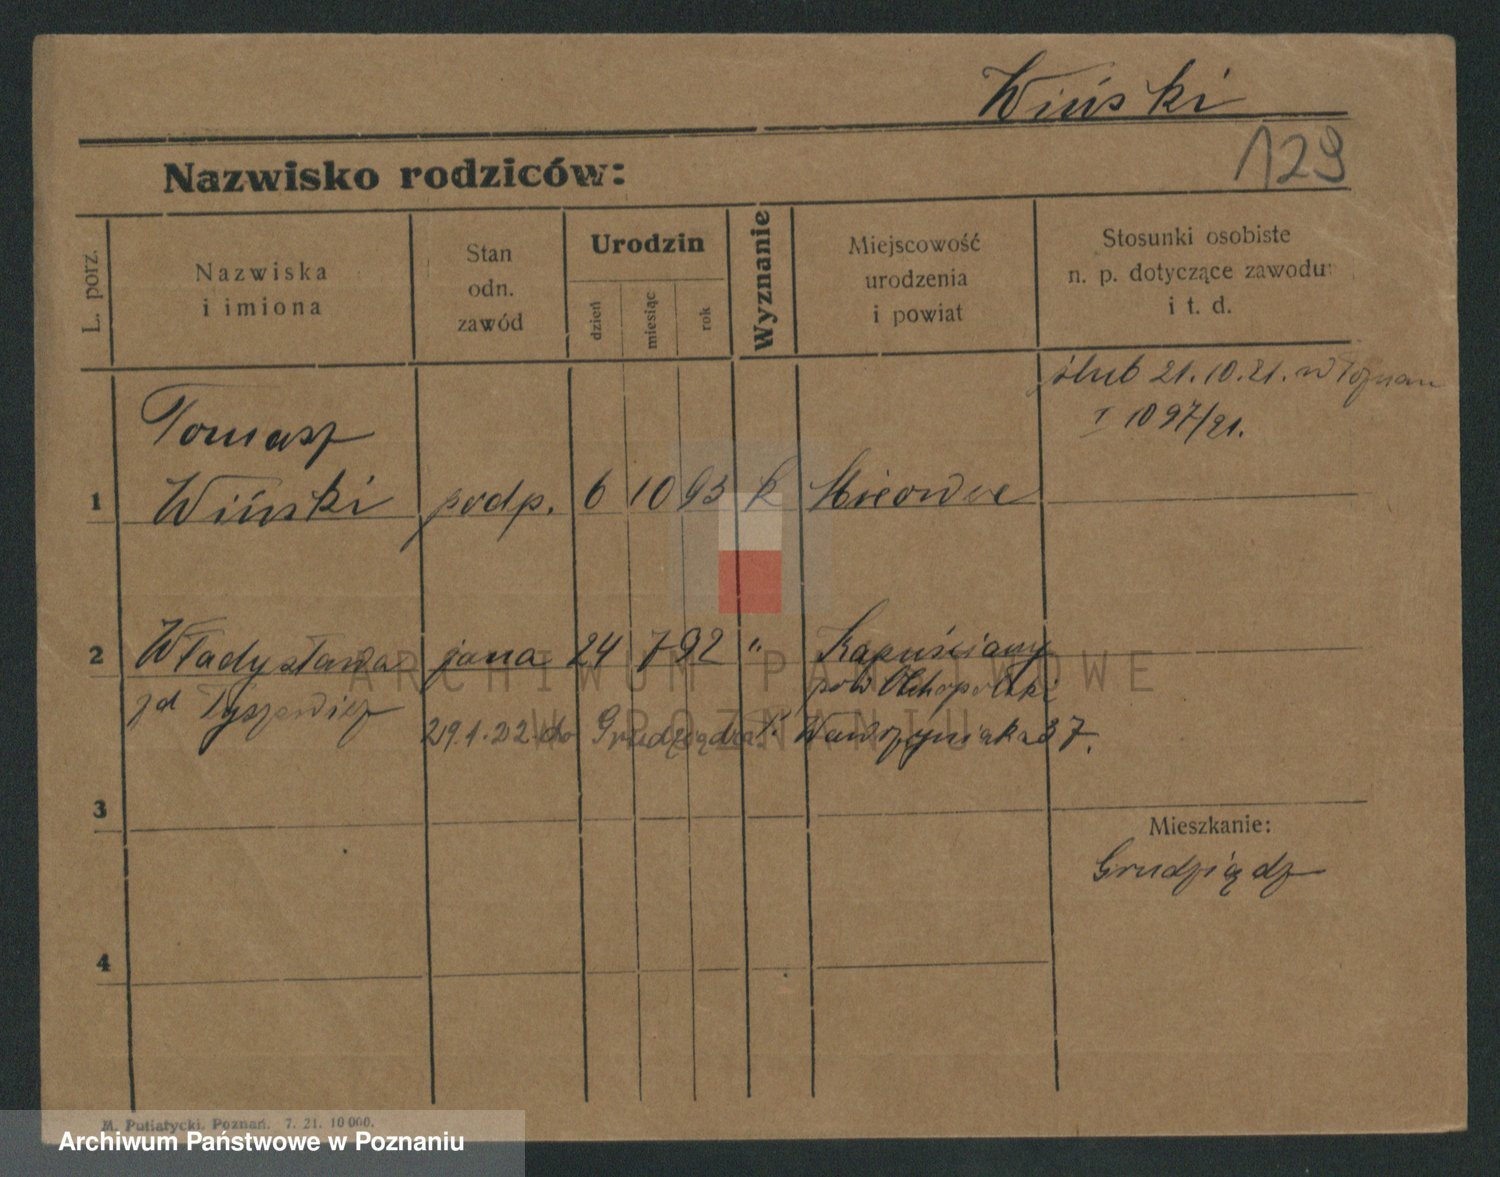 Wiński
129
Nazwisko rodziców:
L. porz.
Nazwiska
i imiona
Stan
odn.
zawód
Urodzin
dzień
miesiąc
rok
Wyznanie
Miejscowość
urodzenia
i powiat
Stosunki osobiste
n. p. dotyczące zawodu
i t. d.
ślub 21.10.21. w Poznan
I 1097/21.
Tomasz
1 Wiński podp. 6 10 93 k
2 Władysława żona 24 7 92 " Kapuściany
zd Tyszewicz pow
29.1.22 do Grudziądza. Wawrzyniaka 37.
3
Mieszkanie:
Grudziądz
4
M. Putiatycki, Poznań. 7. 21. 10 000.
ARCHIWUM PAŃSTWOWE
W POZNANIU
Archiwum Państwowe w Poznaniu